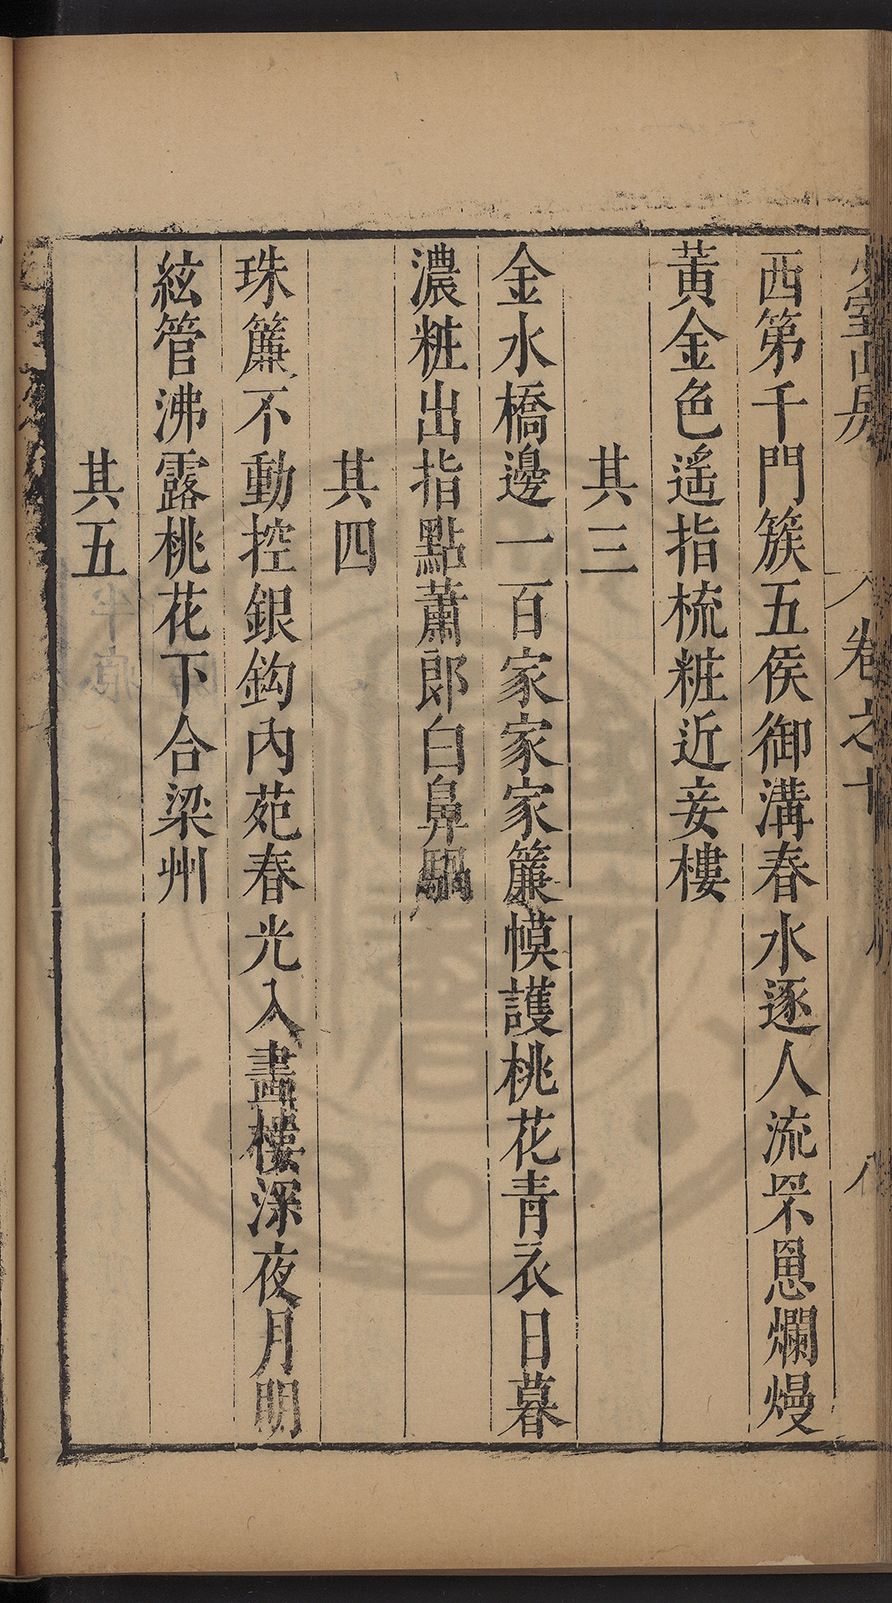 少室山房 卷之十 八
西第千門簇五侯御溝春水逐人流罘罳爛熳
黃金色遙指梳粧近妾樓
其三
金水橋邊一百家家家簾幙護桃花青衣日暮
濃粧出指點蕭郎白鼻騧
其四
珠簾不動控銀鈎內苑春光入畫樓深夜月明
絃管沸露桃花下合梁州
其五